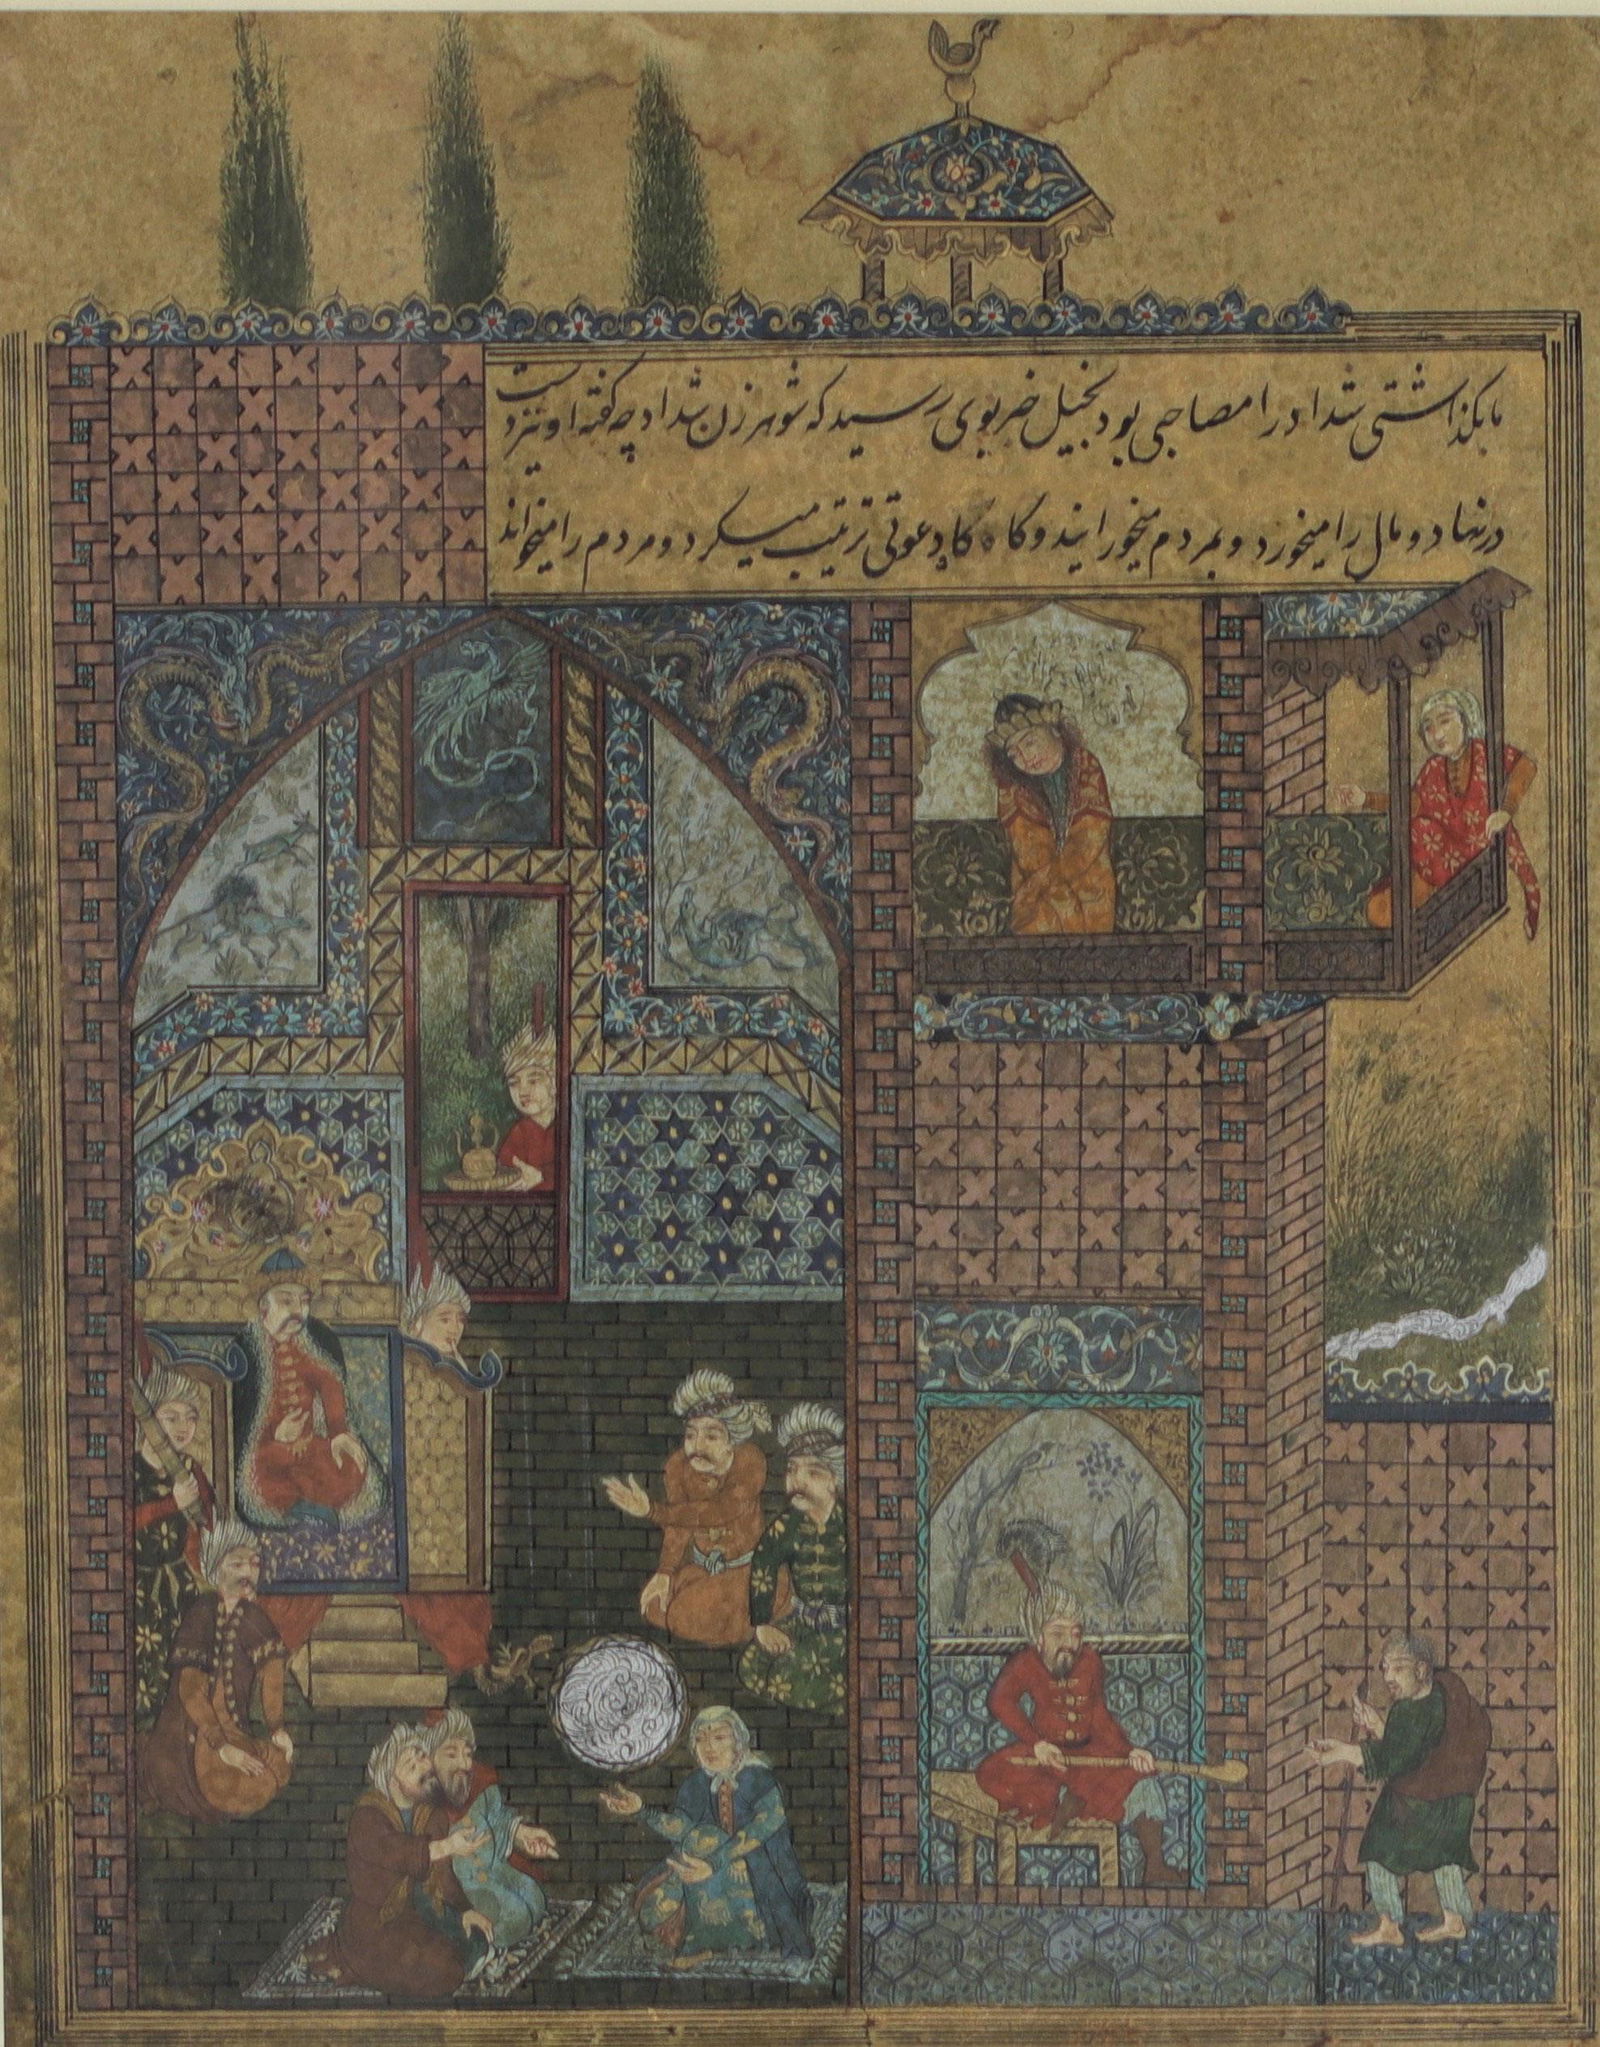 مابکذاشتی شداد را مصاحبی بود بخیل خبر بوی رسید که شوهر زن شداد چه کفته او نیزدست
در نهاد و مال را میخورد و بمردم میخورانید و کاه کاه دعوتی ترتیب میکرد و مردم را میخواند